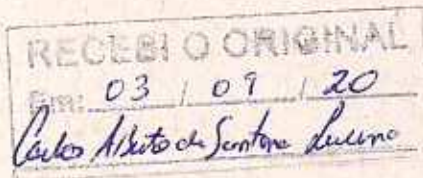 RECEBI O ORIGINAL
Em: 03 / 09 / 20
Carlos Alberto de Santana